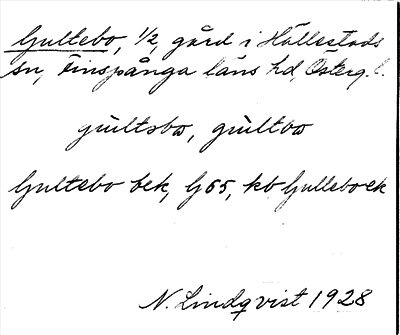 Gultebo, 1/2, gård i Hällestads
sn, Finspånga läns hd, Österg. l.
gùltsbω, gùltbω
Gultebo bek, G65, kb Gullebo ek
N. Lindqvist 1928